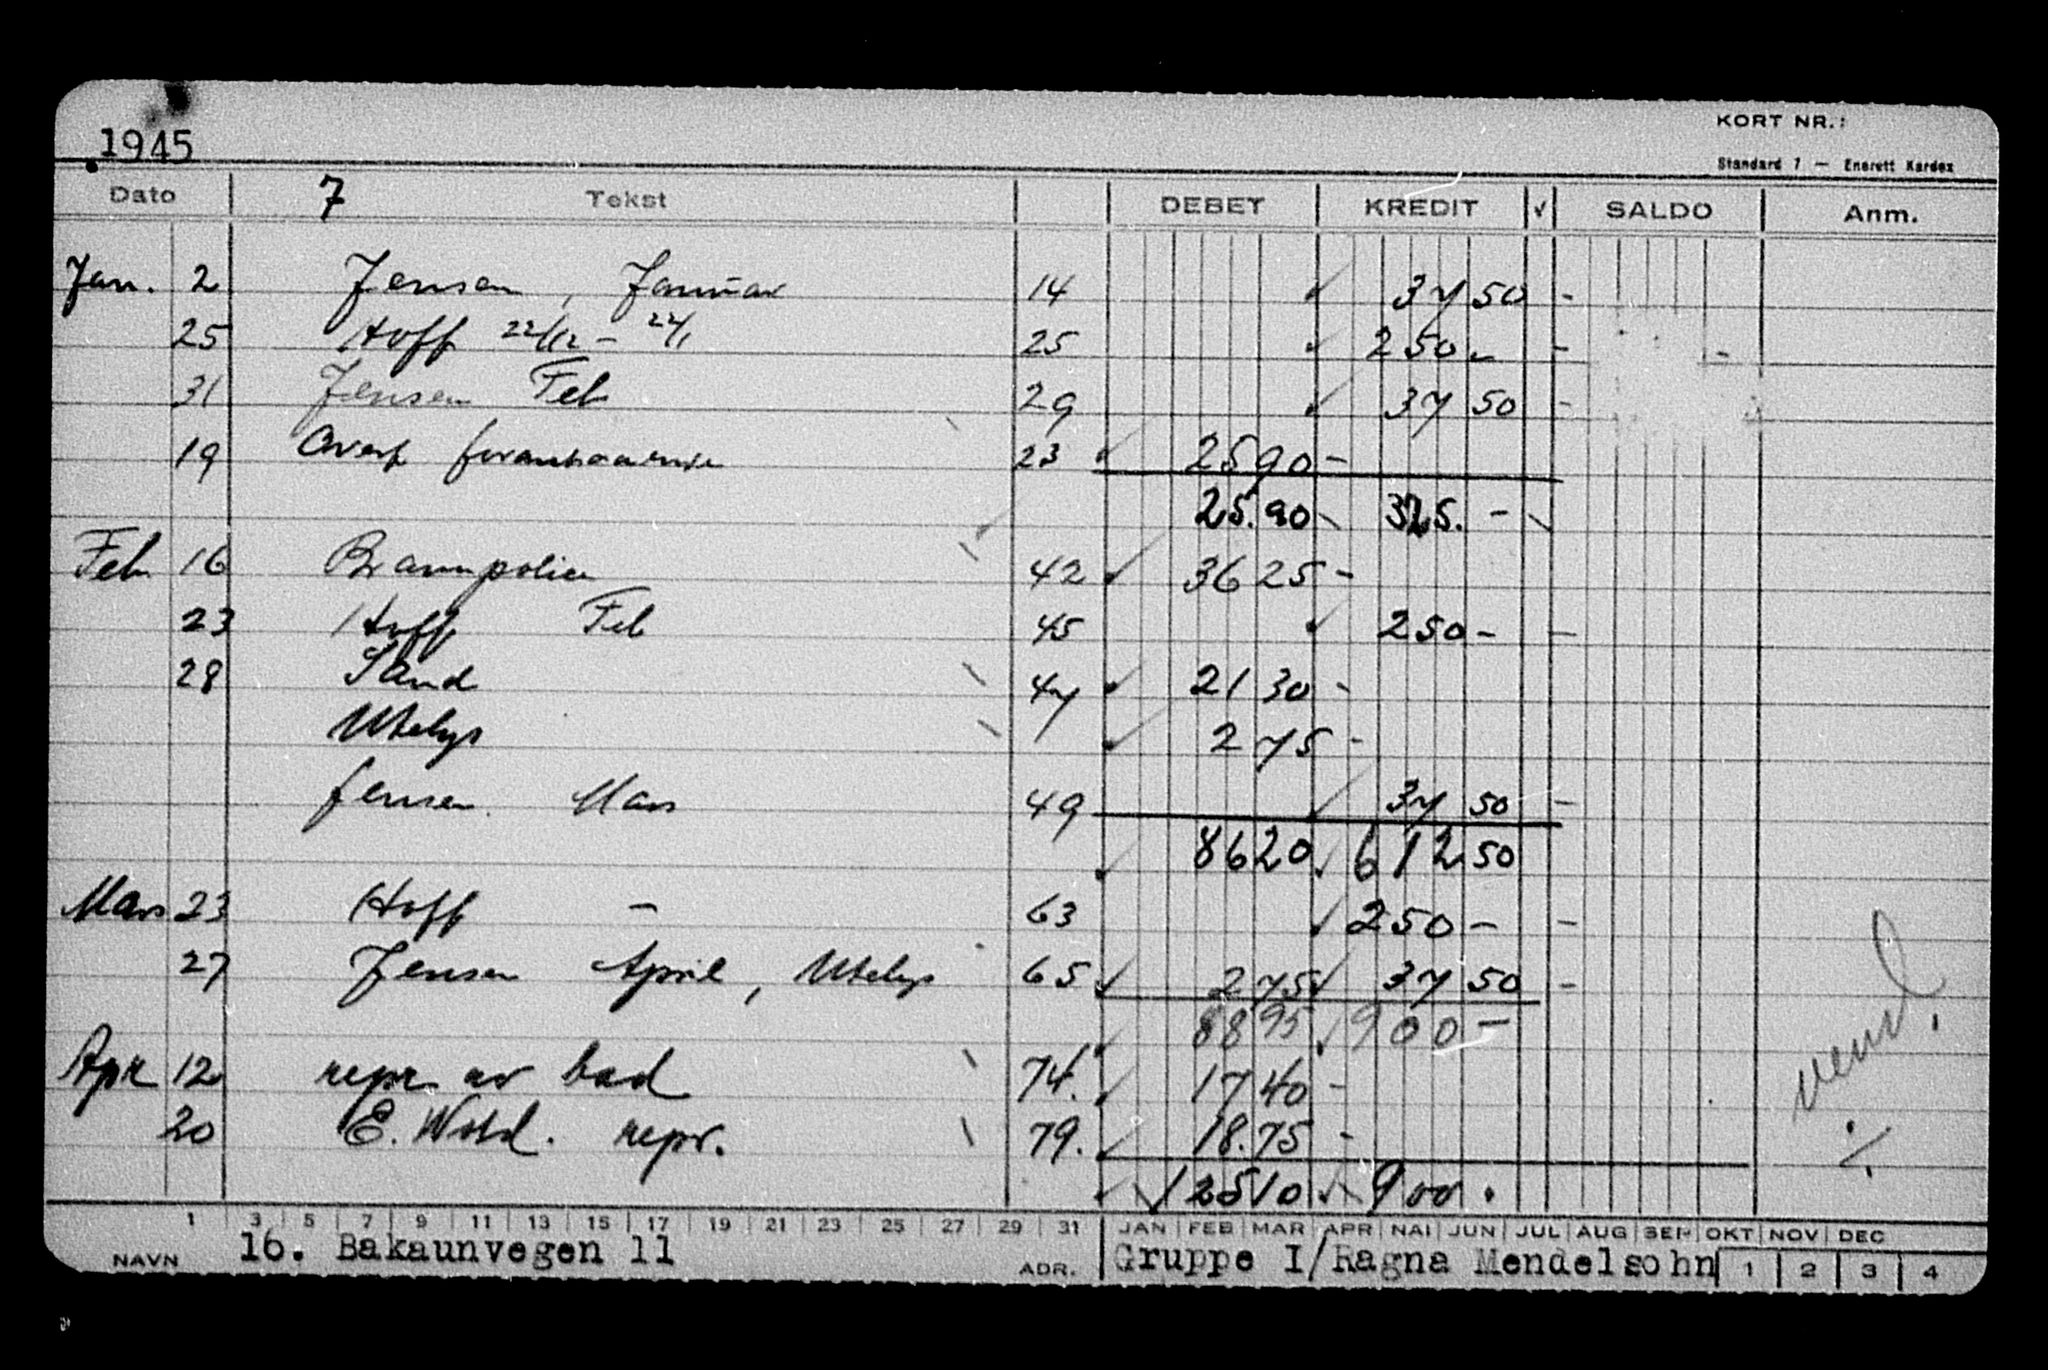 KORT NR.:
1945
Standard 7 — Enerett Kardex
Dato 7 Tekst DEBET KREDIT √ SALDO Anm.
Jan. 2 Jensen, Januar 14 37 50 -
25 Hoff 22/12 - 22/1 25 250 - -
31 Jensen Feb 29 37 50 -
19 23 25 90 -
25.90 325. -
Feb 16 Brannpolice 42 36 25 -
23 Hoff Feb 45 250 - -
28 Sand 47 21 30 -
Utelys 2 75 -
Jensen. Mars 49 37 50 -
86 20 612 50
Mars 23 Hoff - 63 250 - -
27 Jensen April, Utelys 65 2 75 37 50 -
88 95 900 -
Apr 12 repr av bad 74. 17 40 -
20 E. Wold. repr. 79. 18.75 -
125 10 900.
vend!
1 3 5 7 9 11 13 15 17 19 21 23 25 27 29 31 JAN FEB MAR APR MAI JUN JUL AUG SEP OKT NOV DEC
NAVN 16. Bakaunvegen 11 ADR. Gruppe I/Ragna Mendelsohn 1 2 3 4